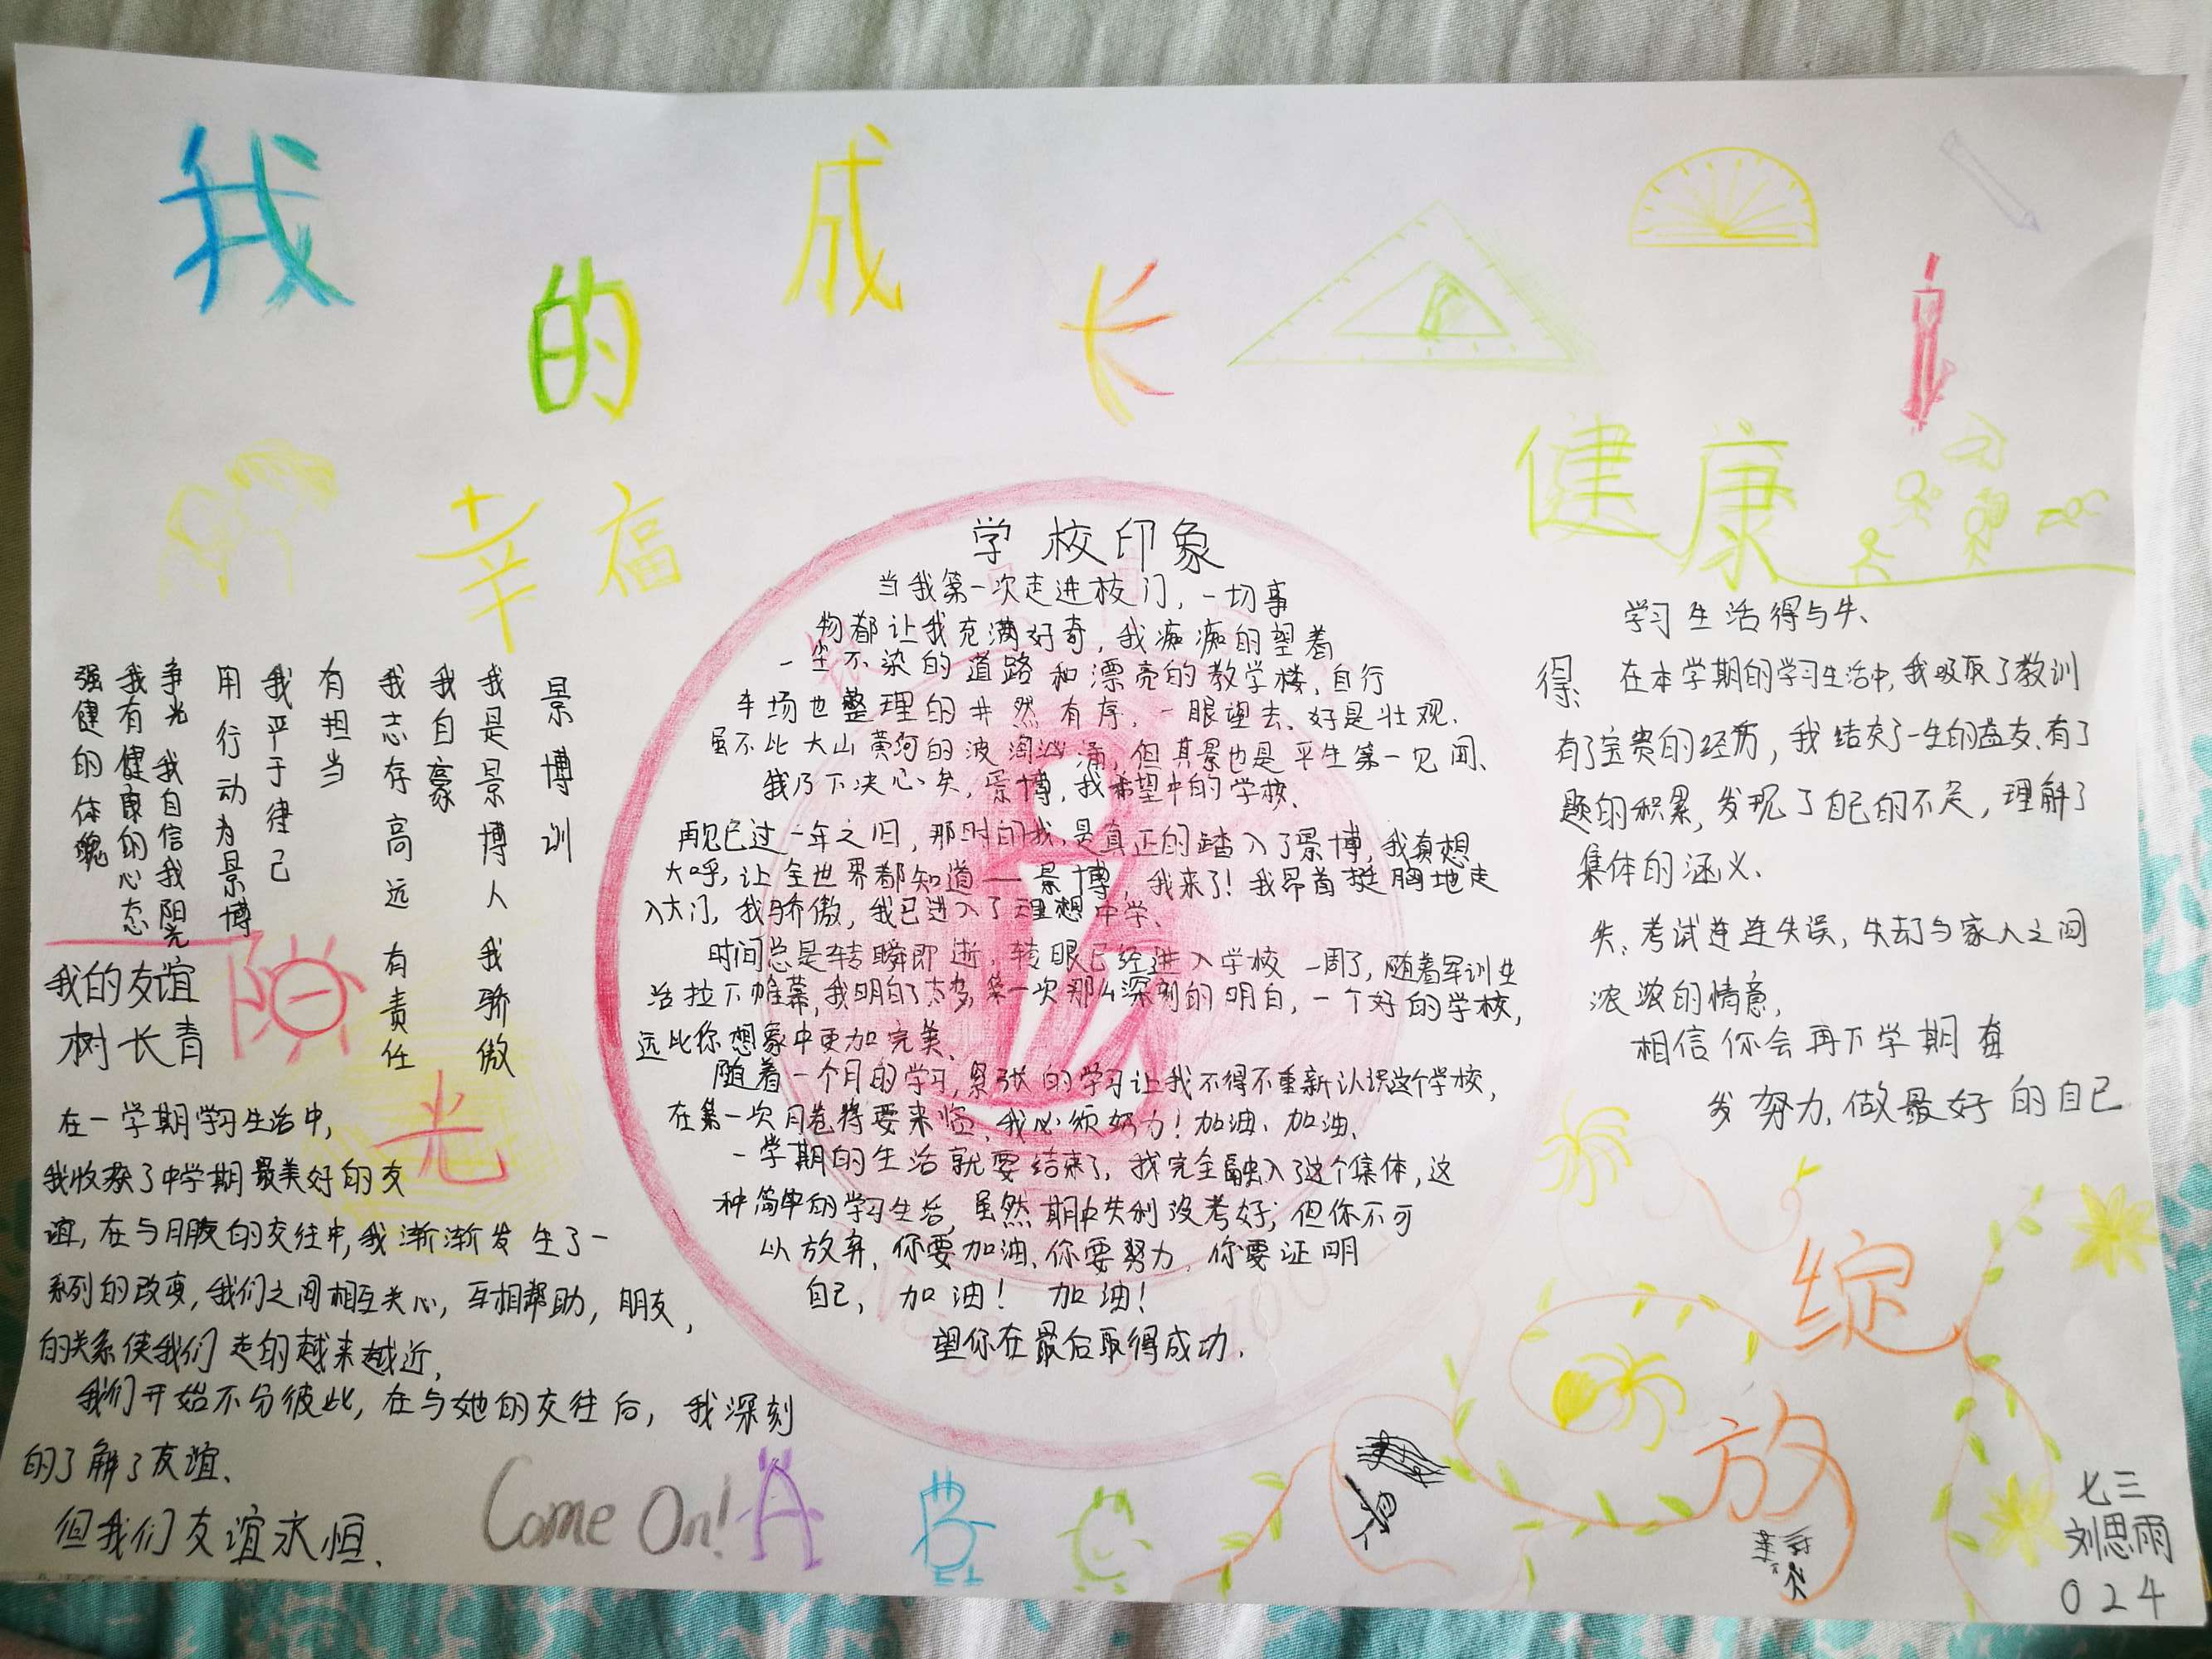 我的成长
幸福
健康
景博训
我是景博人 我骄傲
我自豪
我志存高远 有责任
有担当
我严于律己
用行动为景博
争光 我自信我阳光
我有健康的心态
强健的体魄
阳光
我的友谊
树长青
在一学期学习生活中,
我收获了中学期最美好的友
谊,在与朋友的交往中,我渐渐发生了一
系列的改变,我们之间相互关心,互相帮助,朋友,
的关系使我们走的越来越近.
我们开始不分彼此,在与她的交往后,我深刻
的了解了友谊、
但我们友谊永恒、
学校印象
当我第一次走进校门,一切事
物都让我充满好奇,我痴痴的望着
一尘不染的道路和漂亮的教学楼,自行
车场也整理的井然有序,一眼望去、好是壮观.
虽不比大山黄河的波涛汹涌,但其景也是平生第一见闻、
我乃下决心矣,景博,我希望中的学校、
再见已过一年之旧,那时的我,是真正的踏入了景博,我真想
大呼,让全世界都知道——景博,我来了!我昂首挺胸地走
入大门,我骄傲,我已进入了理想中学、
时间总是转瞬即逝,转眼已经进入学校一周了,随着军训生
活拉下帷幕,我明白了太多,第一次那么深刻的明白,一个好的学校,
远比你想象中更加完美、
随着一个月的学习,紧张的学习让我不得不重新认识这个学校,
在第一次月卷将要来临,我必须努力!加油、加油、
一学期的生活就要结束了,我完全融入了这个集体,这
种简单的学习生活,虽然期中失利没考好;但你不可
以放弃,你要加油、你要努力,你要证明
自己,加油! 加油!
望你在最后取得成功.
学习生活得与失、
得、在本学期的学习生活中,我吸取了教训
有了宝贵的经历,我结交了一生的益友、有了
题的积累,发现了自己的不足,理解了
集体的涵义、
失、考试连连失误,失却与家人之间
浓浓的情意,
相信你会再下学期奋
发努力,做最好的自己
绽放
Come On! A B C
七三
刘思雨
024